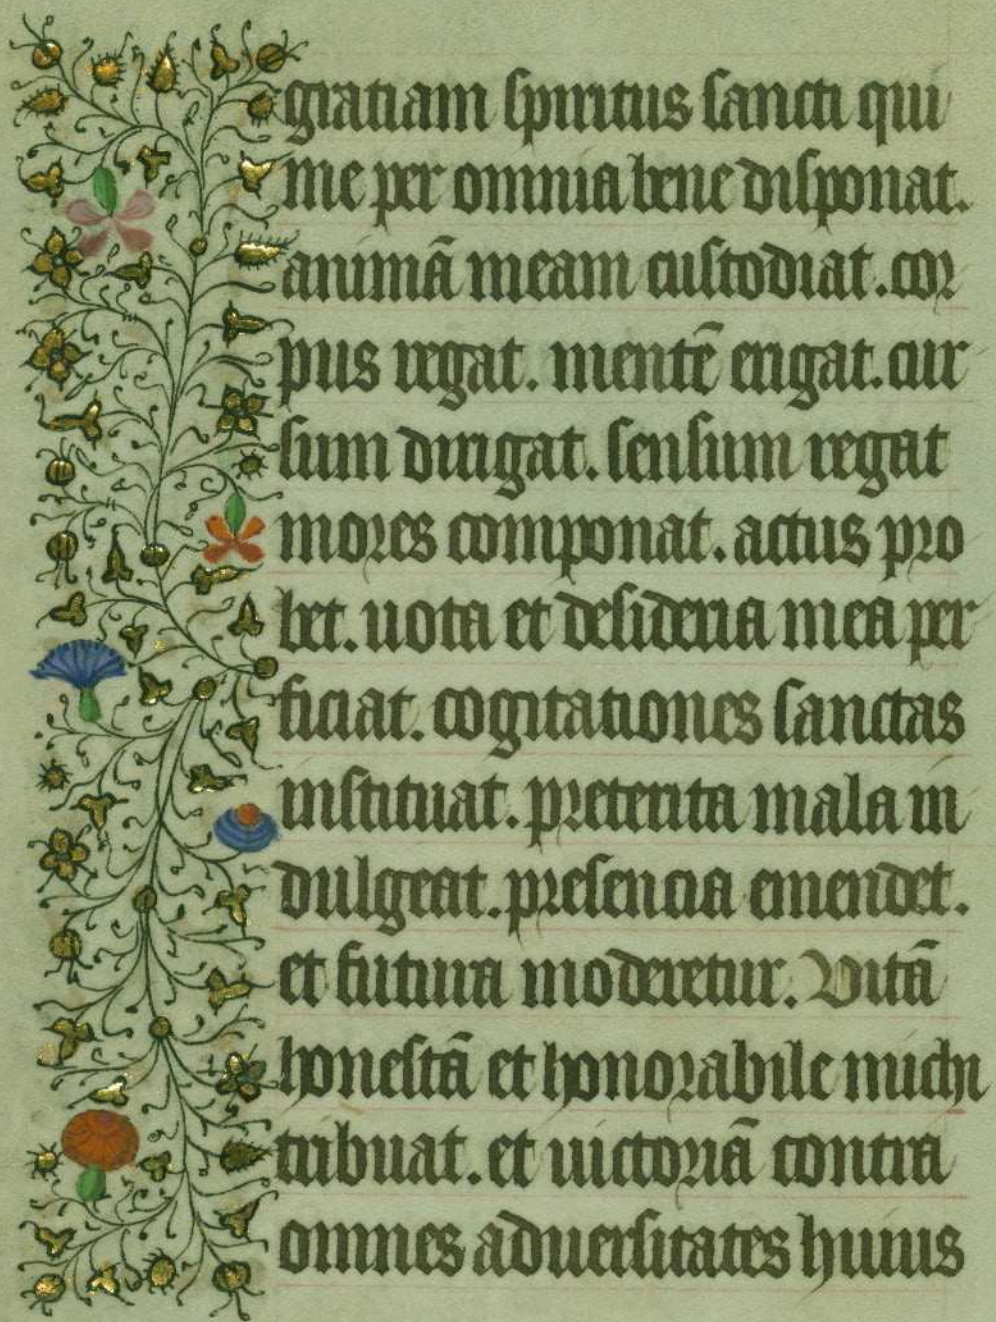 gratiam spiritus sancti qui
me per omnia bene disponat.
animā meam custodiat. cor
pus regat. mentē erigat. cur
sum dirigat. sensum regat
mores componat. actus pro
bet. uota et desideria mea per
ficiat. cogitationes sanctas
instituat. preterita mala in
dulgeat. presencia emendet.
et futura moderetur. Vitā
honestā et honorabile michi
tribuat. et uictoriā contra
omnes aduersitates huius